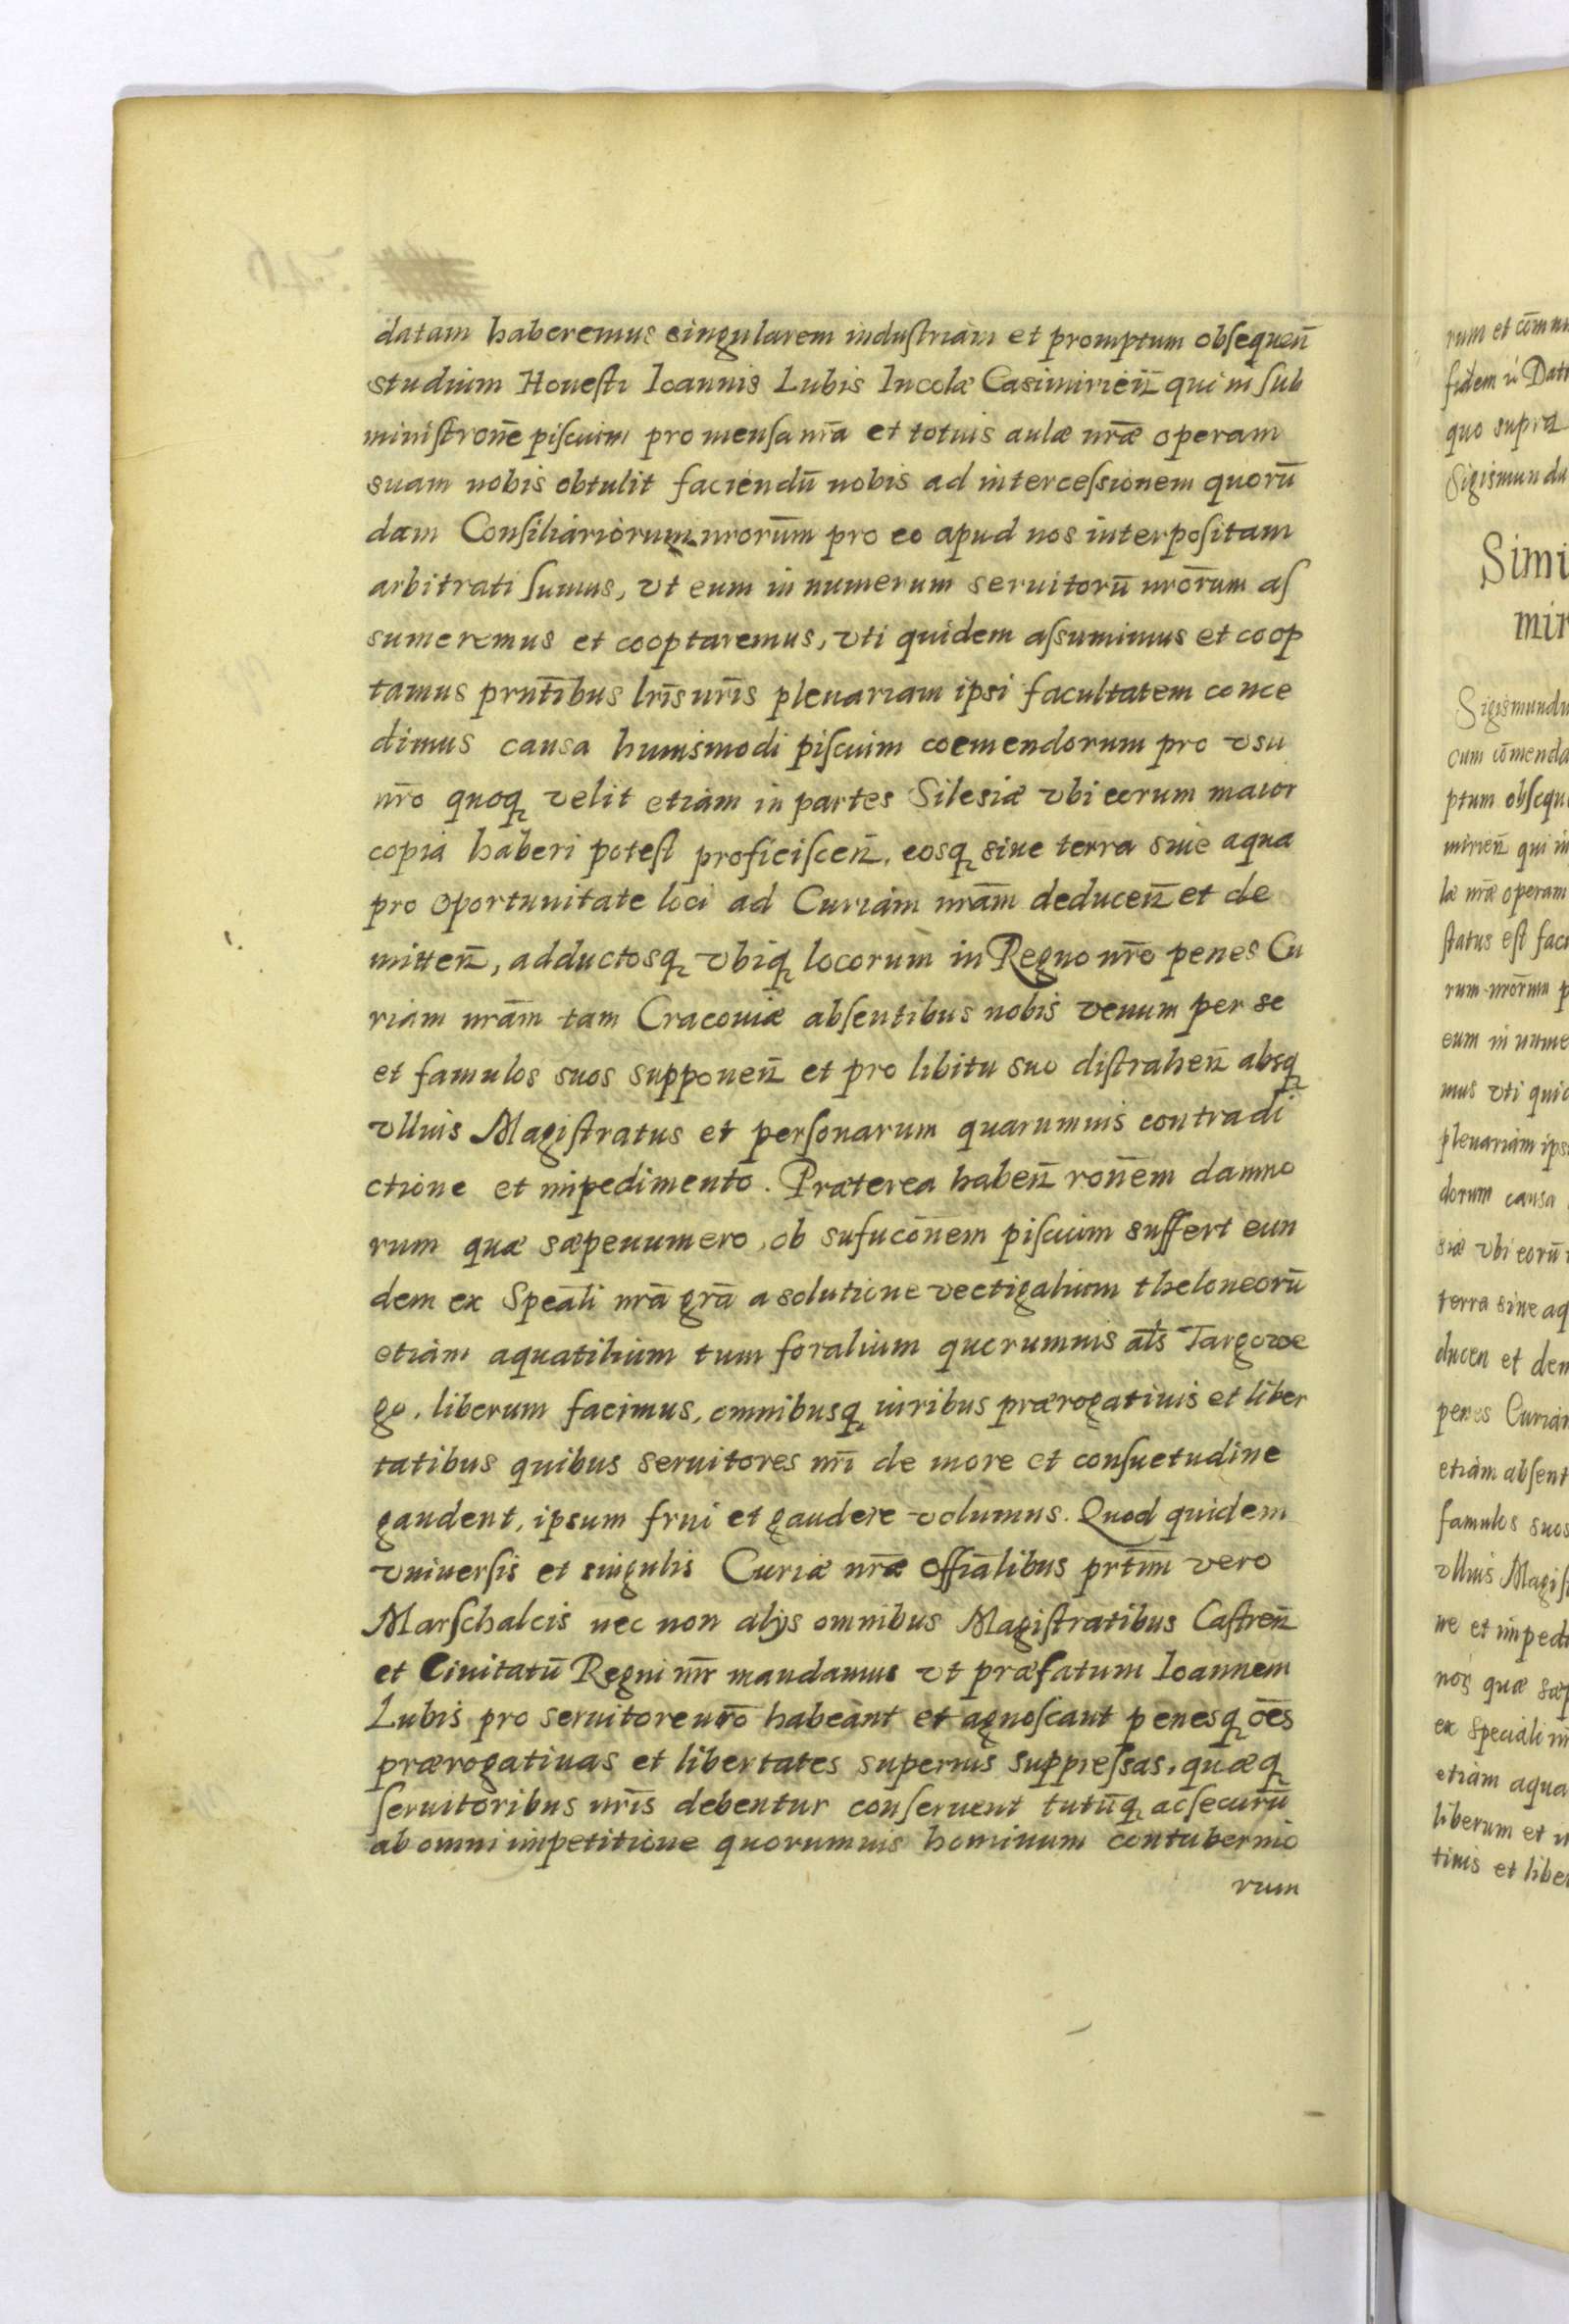 datam haberemus singularem industriam et promptum obsequen̄
studium Honesti Ioannis Lubis Incolæ Casimirien̄ qui in sub
ministron̄e piscium pro mensa nr̄a et totius aulæ nr̄æ operam
suam nobis obtulit faciendū nobis ad intercessionem quorū
dam Consiliariorum nrōrum pro eo apud nos interpositam
arbitrati sumus, vt eum in numerum seruitorū nrōrum as
sumeremus et cooptaremus, vti quidem assumimus et coop
tamus prn̄tibus lrīs nrīs plenariam ipsi facultatem conce
dimus causa huiusmodi piscium coemendorum pro vsu
nr̄o quoq velit etiam in partes Silesiæ vbi eorum maior
copia haberi potest proficiscen̄, eosq siue terra siue aqua
pro oportunitate loci ad Curiam nrām deducen̄ et de
mitten̄, adductosq vbiq locorum in Regno nr̄o penes Cu
riam nrām tam Cracouiæ absentibus nobis venum per se
et famulos suos supponen̄ et pro libitu suo distrahen̄ absq
vllius Magistratus et personarum quarumuis contradi
ctione et impedimento. Præterea haben̄ ron̄em damno
rum quæ sæpenumero, ob sufucōnem piscium suffert eun
dem ex Speāli nr̄a grā a solutione vectigalium theloneorū
etiam aquatilium tum foralium quorumuis al̄s Targowe
go, liberum facimus, omnibusq iuribus prærogatiuis et liber
tatibus quibus seruitores nrī de more et consuetudine
gaudent, ipsum frui et gaudere volumus. Quod quidem
vniuersis et singulis Curiæ nr̄æ offiālibus prt̄im vero
Marschalcis nec non alijs omnibus Magistratibus Castren̄
et Ciuitatū Regni nrī mandamus vt præfatum Ioannem
Lubis pro seruitore nr̄o habeant et agnoscant penesq oēs
prærogatiuas et libertates superius suppressas, quæq
seruitoribus nrīs debentur conseruent tutūq ac securū
ab omni impetitione quorumuis hominum contubernio
rum
rum et cōmu
fidem
quo supra
Sigismundu
Simi
mir
Sigismundu
cum cōmenda
ptum obsequ
mirien̄ qui in
læ nr̄æ operam
status est faci
rum nrōrum p
eum in nume
mus vti quid
plenariam ips
dorum causa
siæ vbi eorū
terra siue aq
ducen et dem
penes Curiam
etiam absent
famulos suos
vllius Magis
ne et impedi
quæ sæp
ex speciali
etiam aqua
liberum et
tiuis et liber